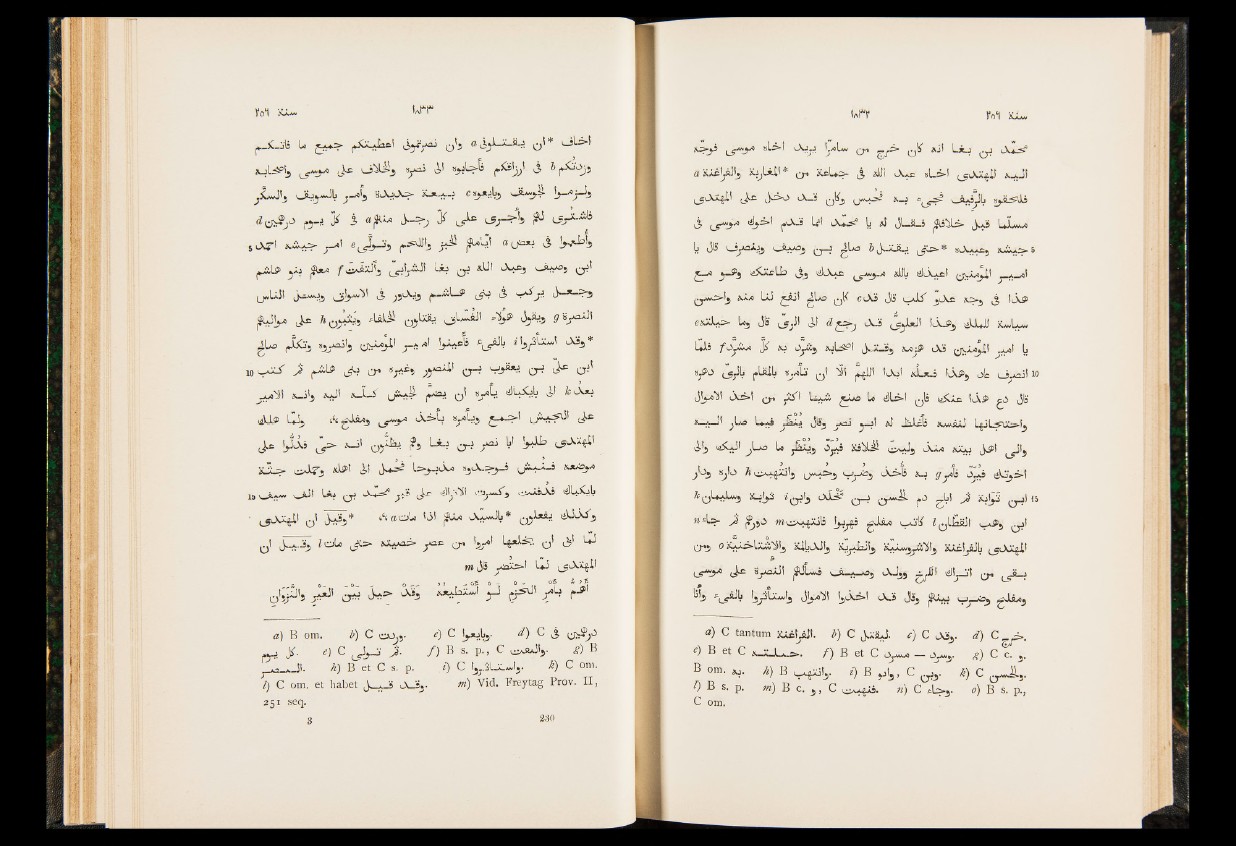 سنة ٢٥٦ ١٨٣٢
محمّد بن بغا انه كان خرج من سامرّا يريد اخاه موسى فوجّه
اليه المهتدى اخاه عبد الله فى جماعة من *المغاربة والفراغنة a
فلحقوه بالرفيف فجىء به فحُبس وكان قد دخل على المهتدى
مسلّما قبل خلافهم فقال له يا محمّد انما قدم اخوك موسى فى
5 جيشه وعبيده *حتى يقتل b صالح بن وصيف وينصرف قال يا
امير المؤمنين اعيذك بالله موسى عبدك وفى طاعتك وهو مع
هذا فى وجه عدوّ كلب قال قد c كان صالح انفع لنا منه واحسن
سياسة للملك وهذا العلوى قد رجع d الى الرى قال وما حيلته e
يا امير المؤمنين قد هزمه وقتل اصحابه وشرّد به كلّ مشرّد f فلمّا
10 انصرف عاد وهذا فعله ابدا اللهمّ الّا ان تأمره بالمقام بالرى دهره
قال دع هذا عنك فان اخاك ما صنع شيئا اكثر من اخذ الاموال
واحتجانها لنفسه فأغلظ له ابو نصر وقال يُنْظَر فيما صار اليه
والى اهل بيته منذ وليت الخلافة فيُرَدّ ويُنْظَر ما صار اليك والى
اخوتك فيُرَدّ فأمر g به فأُخذ وضُرب وحُبس وانتُهبت h داره ودار
15 ابن ثَوابة ثم اباح دم الحسن بن مَخْلَد وابن i ثوابة وسليمان k
ابن وهب القطّان l كاتب مفلح فهربوا فانتهبت m دورهم ثم جاء n
المهتدى بالفراغنة والاشروسنية والطبرية والديالمة والاشتاخنية o ومن
بقى من اتراك الكرخ وولد وصيف فسألهم النصرة على موسى
ومفلح وضرب بينهم وقال قد اخذوا الاموال واستأثروا بالفىء وأنا
a) C tantum الفراغنة. b) C ليقتل. c) C وقد. d) C خرج.
e) B et C حملته. f) B et C وسرد — مسرد. g) C c. و.
B om. به. h) B وانتهب. i) B وادو, C وبن. k) C والحسن.
l) B s. p. m) B c. و, C فنهبت. n) C وجاء. o) B s. p.,
C om.
سنة ٢٥٦ ١٨٣٣
اخاف *ان يقتلونى a وان نصرتمونى اعطيتكم جميع ما فاتكم
وزدتكم b فى ارزاقكم فأجابوه الى نصره والخلاف على موسى واصحابه
ولزموا الجوسق وبايعوه c بيعة جديدة وأمر بالسويق والسكّر
فاشترى لهم وأجرى على كلّ رجل منهم a فى كلّ يوم درهمين d
5 وأُطعموا فى بعض a ايّامهم الخبز واللحم وتولّى e امر جيشه احمد
ابن وصيف وعبد الله بن بغا الشرابى والتفت f معهم بنو هاشم
وجعل يركب فى بنى هاشم ويدور فى الاسواق ويسئل الناس
النصرة g ويقول هؤلاء الفُسّاق يقتلون الخلفاء ويثبون h على مواليهم
*وقد استأثروا i بالفىء فأعينوا امير المؤمنين وانصروه وتكلّم صالح
10 ابن علىّ بن يعقوب بن المنصور وغيره من بنى هاشم ثم كتب
بعد k الى بايكباك يأمره ان يضمّ الجيش كلّه اليه وانه الامير
على الجيش اجمع ويأمره بأخذ موسى ومفلح، ولمّا هلك
المهتدى طلبوا ابا نصر بن بغا وهم يظنّون انه حىّ فدُلّوا على
موضعه فنبش فوجدوه مذبوحا فحُمل الى اهله وحملت جثّة
15 بايكباك فدُفنت وكسرت الاتراك على قبر محمّد بن بغا الف سيف
وكذلك يفعلون *بالسيّد منهم اذا مات a، *وقيل ان المهتدى
لمّا ابى ان يخلعها امروا من عصر خصيته حتى مات l وقيل ان
المهتدى لمّا احتضر قال m
أَهُمُّ بأَمْرِ الحَزْمِ لَوْ أَسْتَطِيعُهُ وَقَدْ حِيلَ بَيْنَ العَيْرِ والنَّزَوانِ
a) B om. b) C وردت. c) C وبايعوا. d) C درهمين فى
كل يوم. e) C ثم تولى. f) B s. p., C والقت. g) B
المصر. h) B et C s. p. i) C واستاثروا. k) C om.
l) C om. et habet وقد قيل. m) Vid. Freytag Prov. II,
251 seq.
3 230